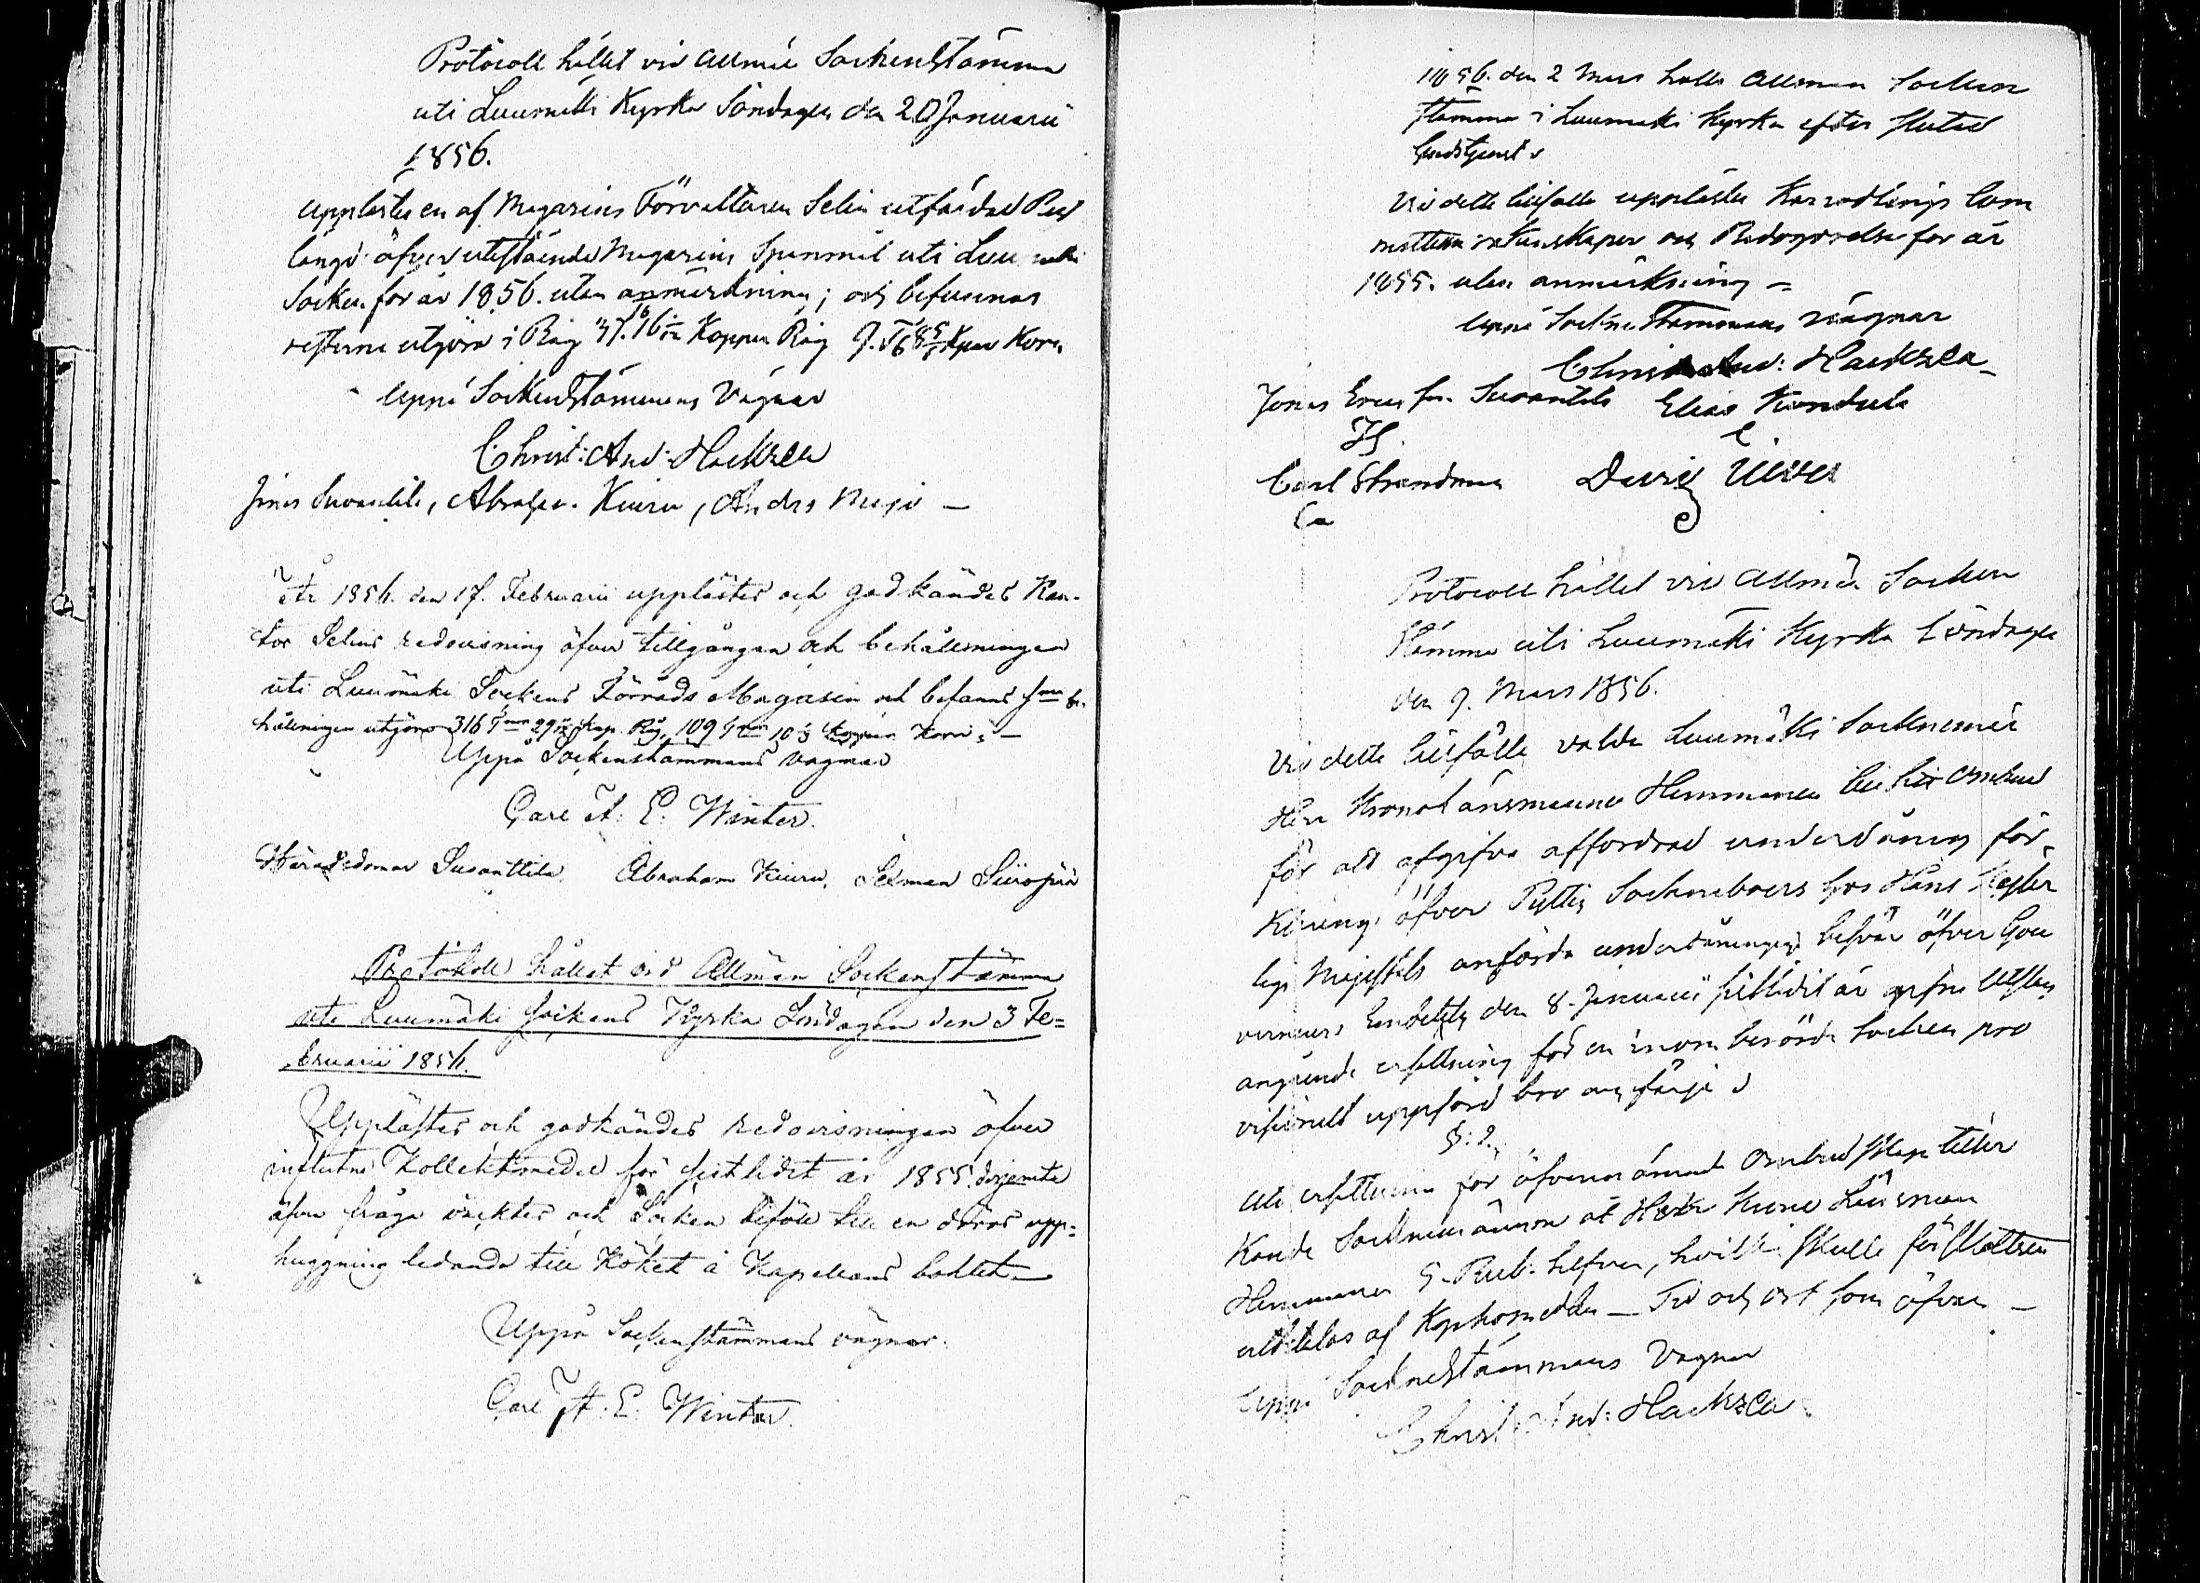 Protocoll hållet vid Allmän Sockenstämma
uti Luumäki Kyrka Söndagen den 20 Januarii
1856.
Upplästes en af Magasins Förvaltaren Selin utfärdad Rest
längd öfver utestående Magasins Spanmål uti Luumäki
Socken för år 1856. utan anmärkning; och befunnos
resterne utgöra i Råg Kappar Råg Korn
Uppå Sockenstämmans vägnar
Christ: And: Hackzell
Jonas Suvanttila, Abraham Kiuru, Anders
År 1856. den 17. Februarii upplästes och godkändes Kan-
tor Selins redovisning öfver tillgången och behållningen
uti Luumäki Sockens Förråds Magasin och befanns be-
hållningen utgöra 316 Kap. Råg, 109 Kappar Korn;
Uppå Sockenstämmans vägnar
Carl A: E: Winter.
Häradsdomar Suvanttila. Abraham Kiuru.
Protokoll hållet vid Allmän Sockenstämma
uti Luumäki Sockens Kyrka Söndagen den 3 Fe=
bruarii 1856.
Upplästes och godkändes redovisningen öfver
influtne Kollektmedel för sistlidit år 1855. derjemte
äfven fråga väcktes och Socken biföll till en dörrs upp-
huggning ledande till Köket å Kapellans bohlet
Uppå Sockenstämmans vägnar.
Carl A: E: Winter.
1856. den 2 Mars hölls Allmän Socken
stämma i Luumäki Kyrka efter slutad
Gudstjenst
Vid detta tillfälle upplästes Kom
och Redogörelse för år
1855. utan anmärkning =
Uppå Sockne Stämmans vägnar
Christ And: Hackzell
Jonas Ericss. Suvanttila Elias
Carl Strandman David
Protocoll hållet vid Allmän Socken
stämma uti Luumäki Kyrka Söndagen
den 9. Mars 1856.
Vid detta tillfälle valde Luumäki Socknemän
Herr Kronolänsmannen Hemmanen till sitt Ombud
för att afgifva affordrad underdånig för-
klaring öfver Pyttis Socknebors hos Hans Kejser
lige Majestäts anförda underdåniga besvär öfver Gou
verneurs Embetets den 8. Januarii sistlidit år gifne Utslag
angående ersättning för en inom berörde Socken pro
visionelt uppförd bro och färja
§: 2.
Uti ersättning för öfvannämnde Ombudskap tiller
kände Socknemännen åt Herr Krono Länsman
Hemmanen 5. Rub. Silfver, hvilka skulle förskottsvis
utbetalas af Kyrkomedlen — Tid och ort som öfvan —
Uppå Socknestämmans Vägnar
Christ And: Hackzell